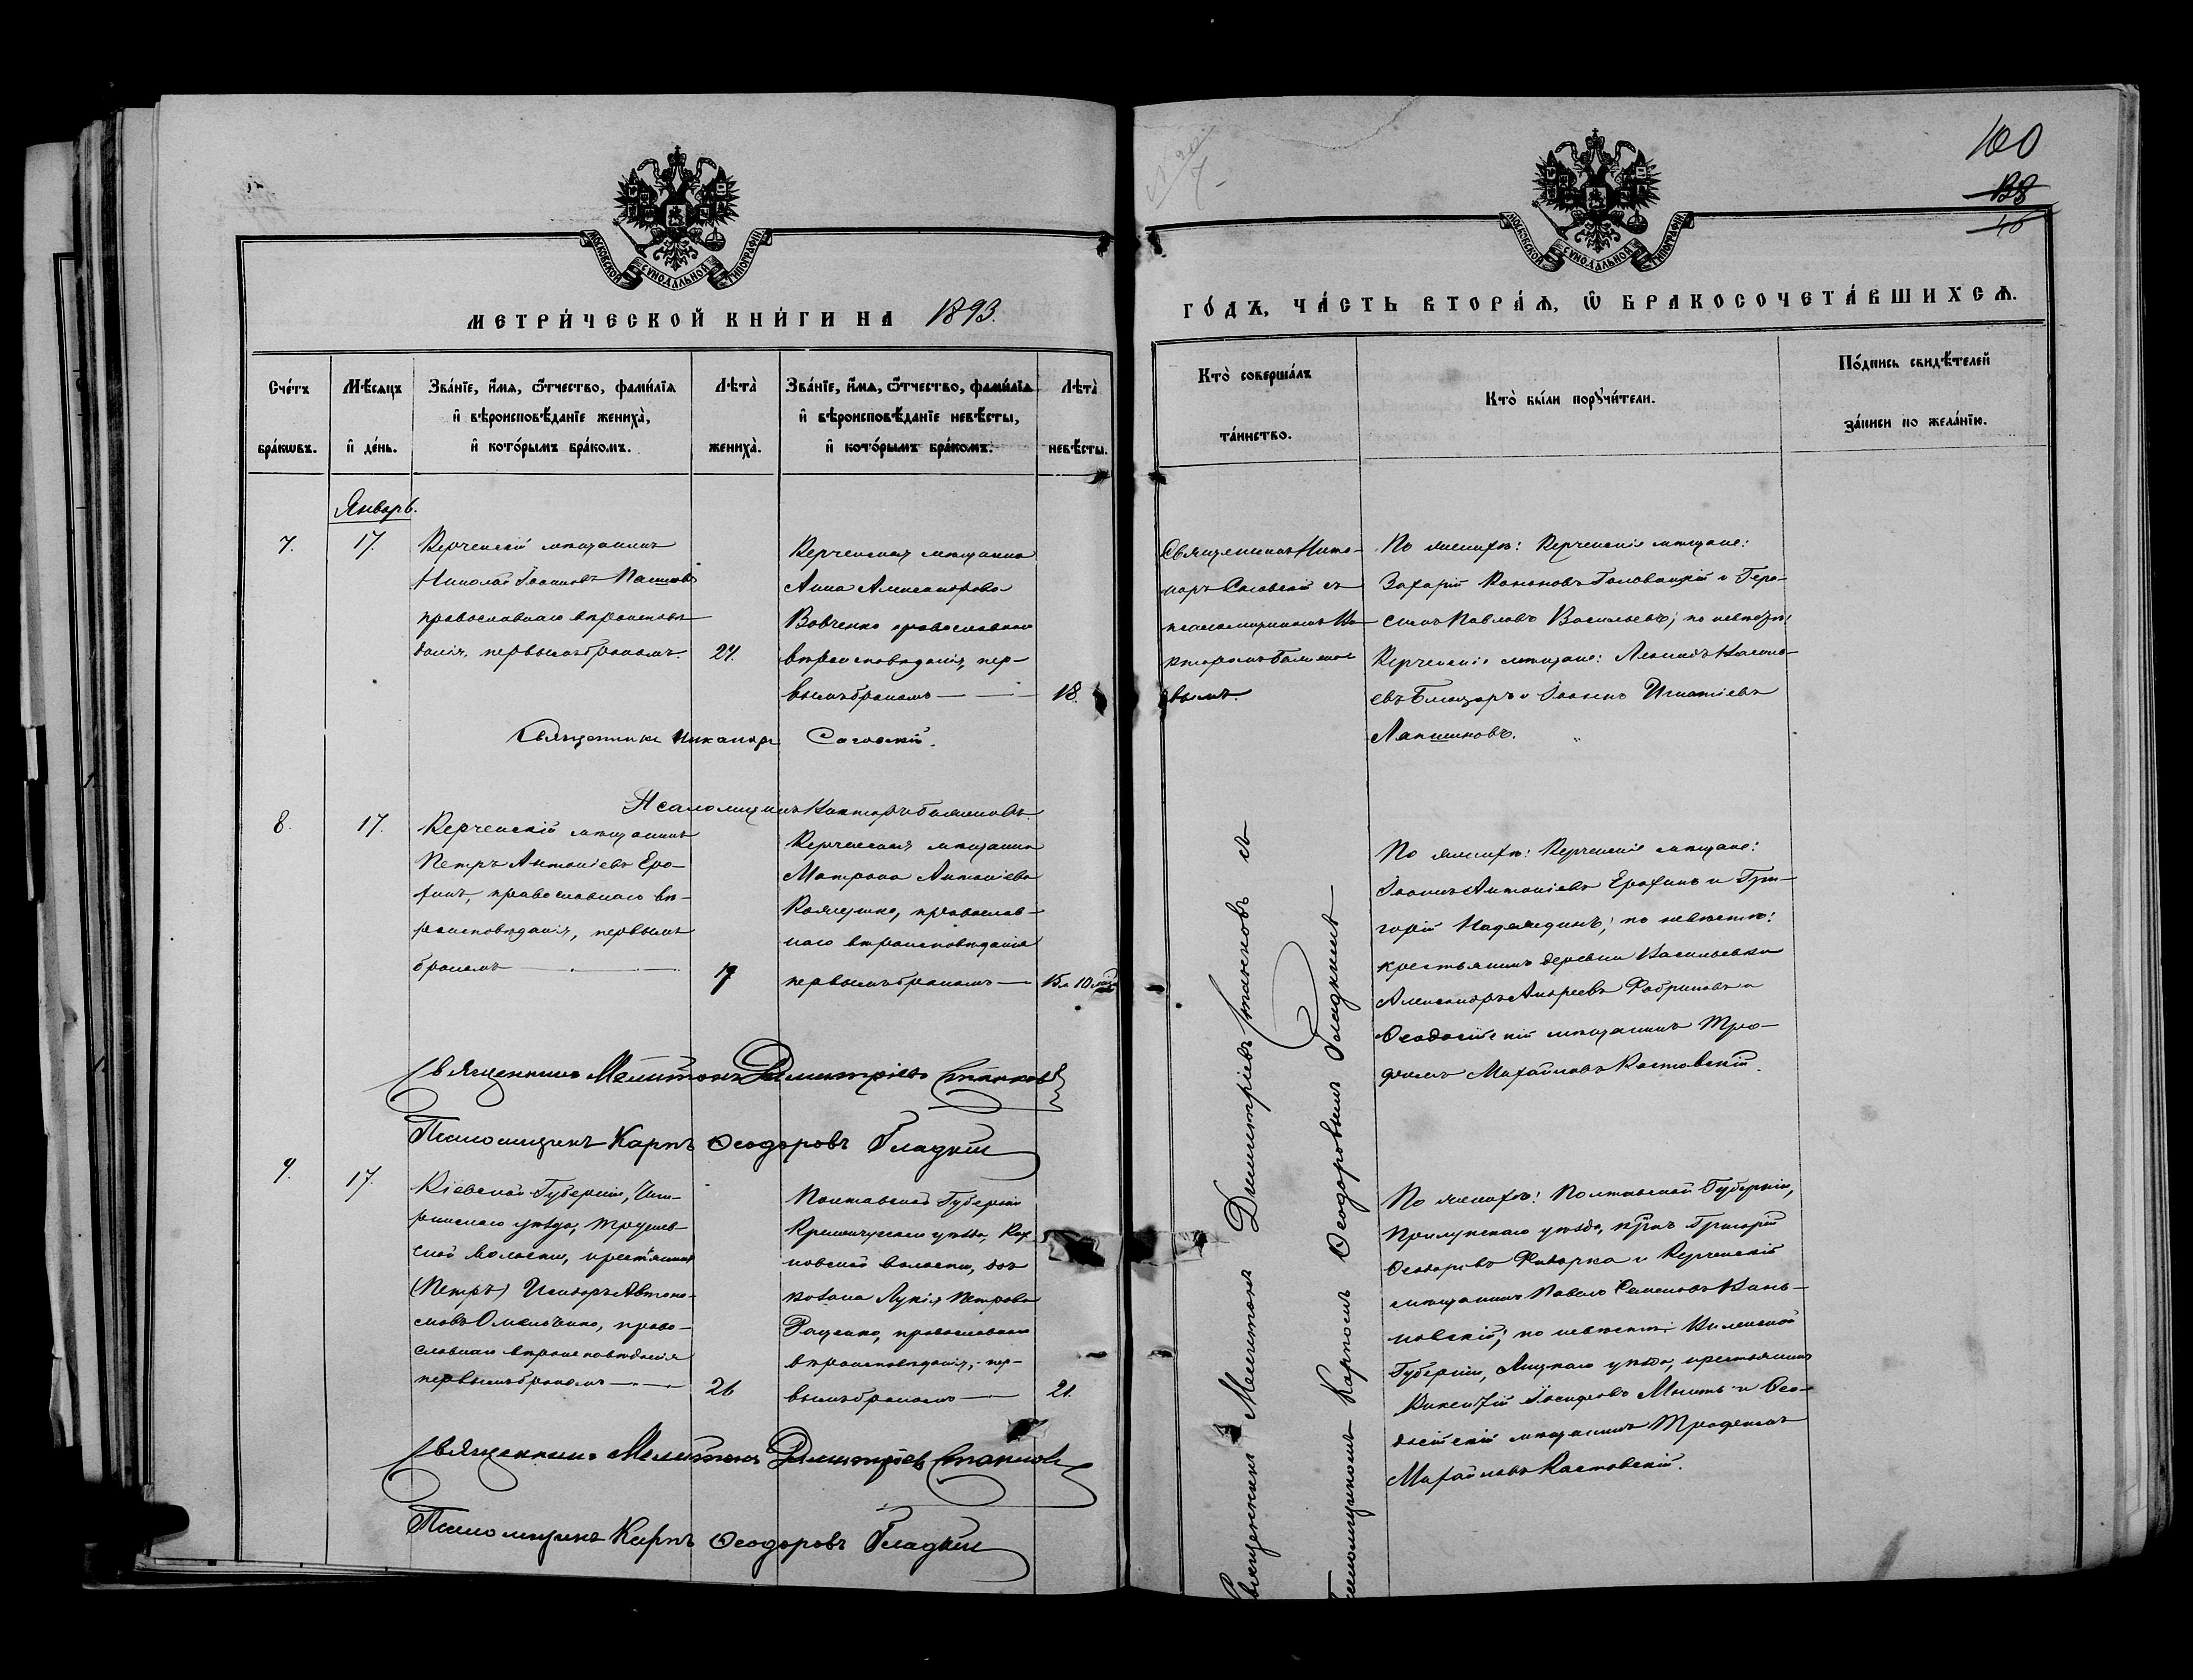 100
138
МОСКОВСКОЙ СѴНОДАЛЬНОЙ ТИПОГРАФІИ
МЕТРИ́ЧЕСКОЙ КНИ́ГИ НА 1893.
Сче́тъ
бра́кωвъ.
Мѣ́сяцъ
и҆ де́нь.
Зва́нїе, и҆́мѧ, ѻ҆́тчество, фами́лїѧ
и҆ вѣроисповѣ́данїе жениха̀,
и҆ кото́рымъ бра́комъ.
Лѣта̀
жениха̀.
Зва́нїе, и҆́мѧ, ѻ҆́тчество, фами́лїѧ
и҆ вѣроисповѣ́данїе невѣ́сты,
и҆ кото́рымъ бра́комъ.
Лѣта̀
невѣ́сты.
Январь.
7.
17.
Керченскій мѣщанинъ
Николай Іоанновъ
православнаго вѣроисповѣ-
данія, первымъ бракомъ.
24.
Керченская мѣщанка
Анна Александрова
Вовченко православнаго
вѣроисповѣданія, пер-
вымъ бракомъ
18.
Священникъ Никаноръ
Псаломщикъ Викторъ Баженовъ.
8.
17.
Керченскій мѣщанинъ
Петръ Антоніевъ Еро-
финъ, православнаго вѣ-
роисповѣданія, первымъ
бракомъ
19
Керченская мѣщанка
Матрона Антоніева
православ-
наго вѣроисповѣданія
первымъ бракомъ
15 л. 10 мѣс.
Священникъ Мелитонъ Димитріевъ Станковъ
Псаломщикъ Карпъ Ѳеодоровъ Гладкій
9.
17.
Кіевской Губерніи, Чиги-
ринскаго уѣзда, Трушев-
ской волости, крестьянинъ
(Петръ) Исидоръ Автоно-
мовъ Омельченко, право-
славнаго вѣроисповѣданія
первымъ бракомъ
26
Полтавской Губерніи
Кременчугскаго уѣзда,
новской волости, доч
козака Лукія Петрова
Раценко, православнаго
вѣроисповѣданія, пер-
вымъ бракомъ
21.
Священникъ Мелитонъ Димитріевъ Станковъ
Псаломщикъ Карпъ Ѳеодоровъ Гладкій
МОСКОВСКОЙ СѴНОДАЛЬНОЙ ТИПОГРАФІИ
ГО́ДЪ, ЧА́СТЬ ВТОРА́Ѧ, Ѽ БРАКОСОЧЕТА́ВШИХСѦ.
Кто̀ соверша́лъ
та́инство.
Кто̀ бы́ли порꙋчи́тели.
По́дпись свидѣ́телей
за́писи по жела́нїю.
Священникъ Никa-
норъ съ
псаломщикомъ Ви-
кторомъ Бажено-
вымъ.
По женихѣ: Керченскіе мѣщане:
Захарій Кононовъ Головацкій и Гера-
симъ Павловъ Васильевъ; по невѣстѣ:
Керченскіе мѣщане: Леонидъ Василь-
евъ и Іоаннъ Игнатіевъ
Лапшиновъ.
Священникъ Мелитонъ Димитріевъ Станковъ съ
Псаломщикомъ Карпомъ Ѳеодоровымъ Гладкимъ
По женихѣ: Керченскіе мѣщане:
Іоаннъ Антоніевъ Ерофинъ и Гри-
горій Надеждинъ; по невѣстѣ:
крестьянинъ деревни Васильевки
Александръ Андреевъ Фабриковъ и
Ѳеодосійскій мѣщанинъ Тро-
фимъ Михайловъ Костовскій.
По женихѣ: Полтавской Губерніи,
Прилукскаго уѣзда, Григорій
Ѳеодоровъ и Керченскій
мѣщанинъ Павелъ Семеновъ Кань-
новскій; по невѣстѣ: Виленской
Губерніи, Лидскаго уѣзда, крестьянинъ
Викентій Іосифовъ и Ѳео-
досійскій мѣщанинъ Трофимъ
Михайловъ Костовскій.